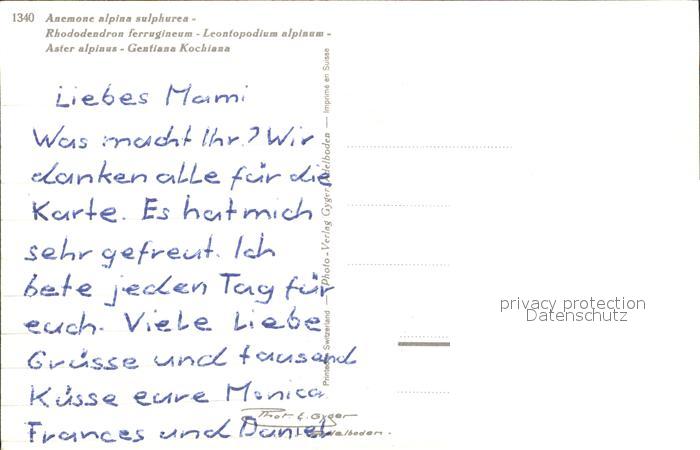 1340 Anemone alpina sulphurea -
Rhododendron ferrugineum - Leontopodium alpinum -
Aster alpinus - Gentiana Kochiana
Liebes Mami
Was macht Ihr? Wir
danken alle für die
Karte. Es hat mich
sehr gefreut. Ich
bete jeden Tag für
euch. Viele Liebe
Grüsse und tausend
Küsse eure Monica
Frances und Daniel
Printed in Switzerland — Photo-Verlag Gyger Adelboden — Imprimé en Suisse
Phot E. Gyger
Adelboden.
privacy protection
Datenschutz